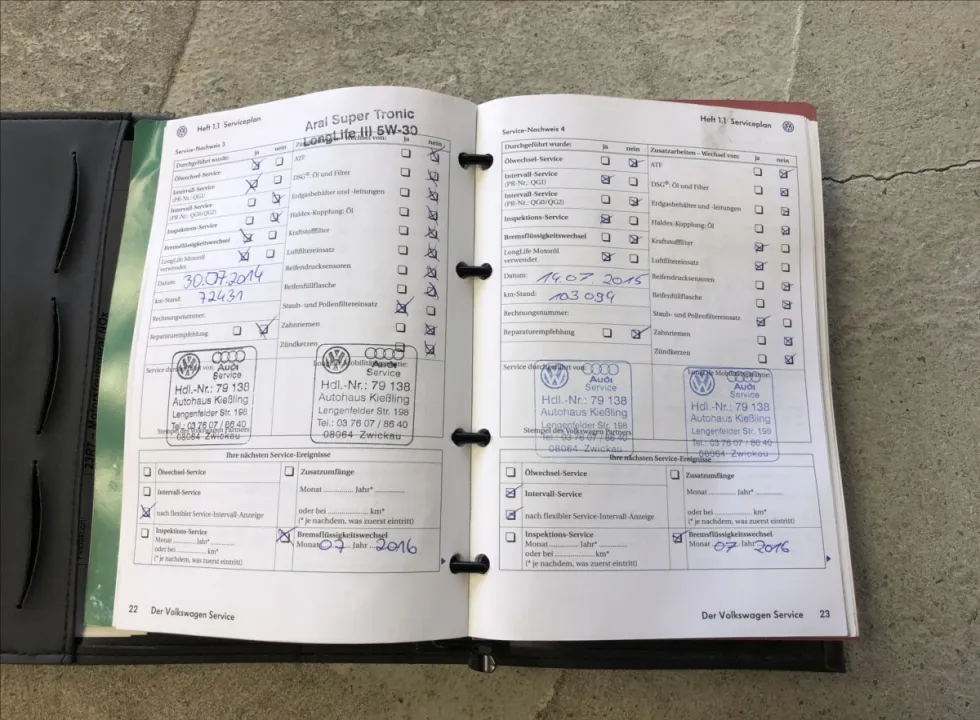 Heft 1.1 Serviceplan
Aral Super Tronic
LongLife III 5W-30
Service-Nachweis 3
Durchgeführt wurde: ja nein
Ölwechsel-Service
Intervall-Service
(PR-Nr.: QG1)
Intervall-Service
(PR-Nr.: QG0/QG2)
Inspektions-Service
Bremsflüssigkeitswechsel
LongLife Motoröl
verwendet
Datum: 30.07.2014
km-Stand: 72431
Rechnungsnummer:
Reparaturempfehlung
Wechsel von: ja nein
ATF
DSG®: Öl und Filter
Erdgasbehälter und -leitungen
Haldex-Kupplung: Öl
Kraftstofffilter
Luftfiltereinsatz
Reifendrucksensoren
Reifenfüllflasche
Staub- und Pollenfiltereinsatz
Zahnriemen
Zündkerzen
Service durchgeführt von:
LongLife Mobilitätsgarantie:
Audi
Service
Hdl.-Nr.: 79 138
Autohaus Kießling
Lengenfelder Str. 198
Tel.: 03 76 07 / 86 40
08064 Zwickau
Audi
Service
Hdl.-Nr.: 79 138
Autohaus Kießling
Lengenfelder Str. 198
Tel.: 03 76 07 / 86 40
08064 Zwickau
Stempel des Volkswagen Partners
Ihre nächsten Service-Ereignisse
Ölwechsel-Service
Intervall-Service
nach flexibler Service-Intervall-Anzeige
Inspektions-Service
Monat Jahr*
oder bei km*
(* je nachdem, was zuerst eintritt)
Zusatzumfänge
Monat Jahr*
oder bei km*
(* je nachdem, was zuerst eintritt)
Bremsflüssigkeitswechsel
Monat 07 Jahr 2016
22 Der Volkswagen Service
Heft 1.1 Serviceplan
Service-Nachweis 4
Durchgeführt wurde: ja nein
Ölwechsel-Service
Intervall-Service
(PR-Nr.: QG1)
Intervall-Service
(PR-Nr.: QG0/QG2)
Inspektions-Service
Bremsflüssigkeitswechsel
LongLife Motoröl
verwendet
Datum: 14.07.2015
km-Stand: 103094
Rechnungsnummer:
Reparaturempfehlung
Zusatzarbeiten – Wechsel von: ja nein
ATF
DSG®: Öl und Filter
Erdgasbehälter und -leitungen
Haldex-Kupplung: Öl
Kraftstofffilter
Luftfiltereinsatz
Reifendrucksensoren
Reifenfüllflasche
Staub- und Pollenfiltereinsatz
Zahnriemen
Zündkerzen
Service durchgeführt von:
LongLife Mobilitätsgarantie:
Audi
Service
Hdl.-Nr.: 79 138
Autohaus Kießling
Lengenfelder Str. 198
Tel.: 03 76 07 / 86 40
08064 Zwickau
Audi
Service
Hdl.-Nr.: 79 138
Autohaus Kießling
Lengenfelder Str. 198
Tel.: 03 76 07 / 86 40
08064 Zwickau
Stempel des Volkswagen Partners
Ihre nächsten Service-Ereignisse
Ölwechsel-Service
Intervall-Service
nach flexibler Service-Intervall-Anzeige
Inspektions-Service
Monat Jahr*
oder bei km*
(* je nachdem, was zuerst eintritt)
Zusatzumfänge
Monat Jahr*
oder bei km*
(* je nachdem, was zuerst eintritt)
Bremsflüssigkeitswechsel
Monat 07 Jahr 2016
Der Volkswagen Service 23